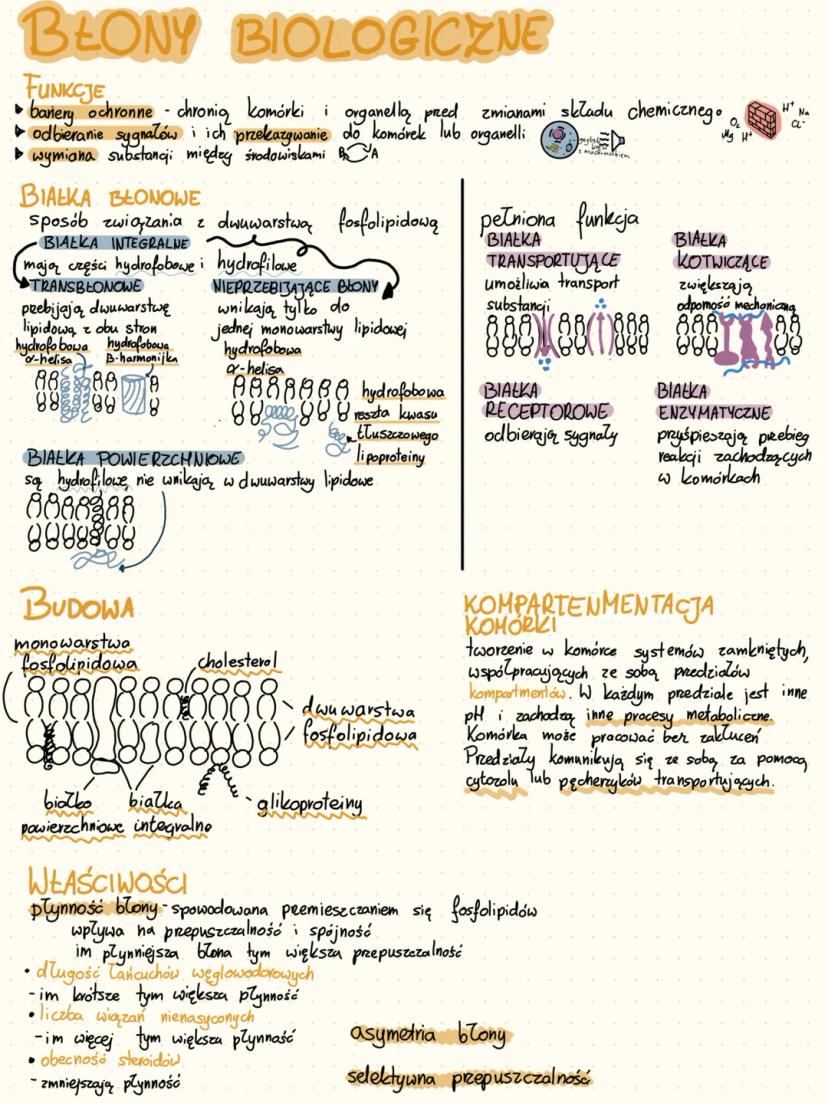 BŁONY BIOLOGICZNE
FUNKCJE
bariery ochronne - chronią komórki i organellą przed zmianami składu chemicznego
odbieranie sygnałów i ich przekazywanie do komórek lub organelli
wymiana substancji między środowiskami B A
H⁺ Na
O₂ Cl⁻
Mg H⁺
BIAŁKA BŁONOWE
sposób związania z dwuwarstwą fosfolipidową
BIAŁKA INTEGRALNE
mają części hydrofobowe i hydrofilowe
TRANSBŁONOWE
przebijają dwuwarstwę
lipidową z obu stron
hydrofobowa
α-helisa
hydrofobowa
β-harmonijka
NIEPRZEBIJAJĄCE BŁONY
wnikają tylko do
jednej monowarstwy lipidowej
hydrofobowa
α-helisa
hydrofobowa
reszta kwasu
tłuszczowego
lipoproteiny
BIAŁKA POWIERZCHNIOWE
są hydrofilowe nie wnikają w dwuwarstwy lipidowe
pełniona funkcja
BIAŁKA
TRANSPORTUJĄCE
umożliwia transport
substancji
BIAŁKA
KOTWICZĄCE
zwiększają
odporność mechaniczną
BIAŁKA
RECEPTOROWE
odbierają sygnały
BIAŁKA
ENZYMATYCZNE
przyśpieszają przebieg
reakcji zachodzących
w komórkach
BUDOWA
monowarstwa
fosfolipidowa
cholesterol
dwuwarstwa
fosfolipidowa
białko
powierzchniowe
białka
integralne
glikoproteiny
KOMPARTENMENTACJA
KOMÓRKI
tworzenie w komórce systemów zamkniętych,
współpracujących ze sobą przedziałów
kompartmentów. W każdym przedziale jest inne
pH i zachodzą inne procesy metaboliczne.
Komórka może pracować bez zakłuceń
Przedziały komunikują się ze sobą za pomocą
cytozolu lub pęcherzyków transportujących.
WŁAŚCIWOŚCI
płynność błony - spowodowana przemieszczaniem się fosfolipidów
wpływa na przepuszczalność i spójność
im płynniejsza błona tym większa przepuszczalność
• długość łańcuchów węglowodorowych
- im krótsze tym większa płynność
• liczba wiązań nienasyconych
- im więcej tym większa płynność
• obecność steroidów
- zmniejszają płynność
asymetria błony
selektywna przepuszczalność